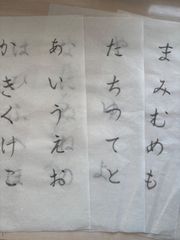 まみむめも
たちつてと
あいうえお
かきくけこ